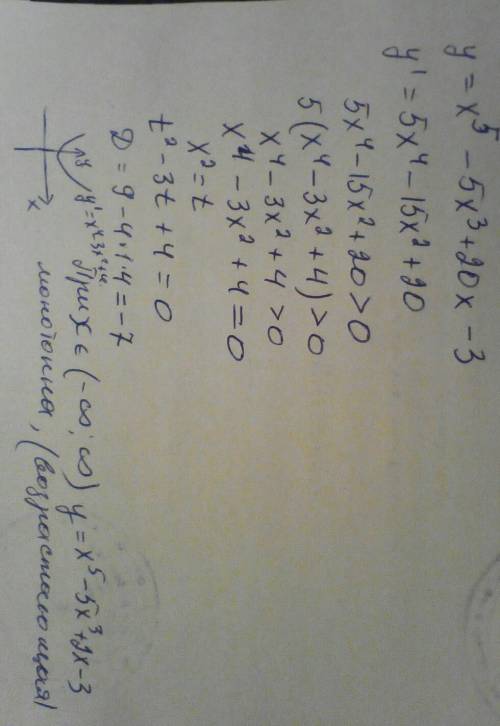 y = x⁵ - 5x³ + 20x - 3
y' = 5x⁴ - 15x² + 20
5x⁴ - 15x² + 20 > 0
5(x⁴ - 3x² + 4) > 0
x⁴ - 3x² + 4 > 0
x⁴ - 3x² + 4 = 0
x² = t
t² - 3t + 4 = 0
D = 9 - 4·1·4 = -7
y y' = x⁴-3x²+4
x
При x ∈ (-∞; ∞) y = x⁵ - 5x³ + 2x - 3
монотонна, (возрастающая)